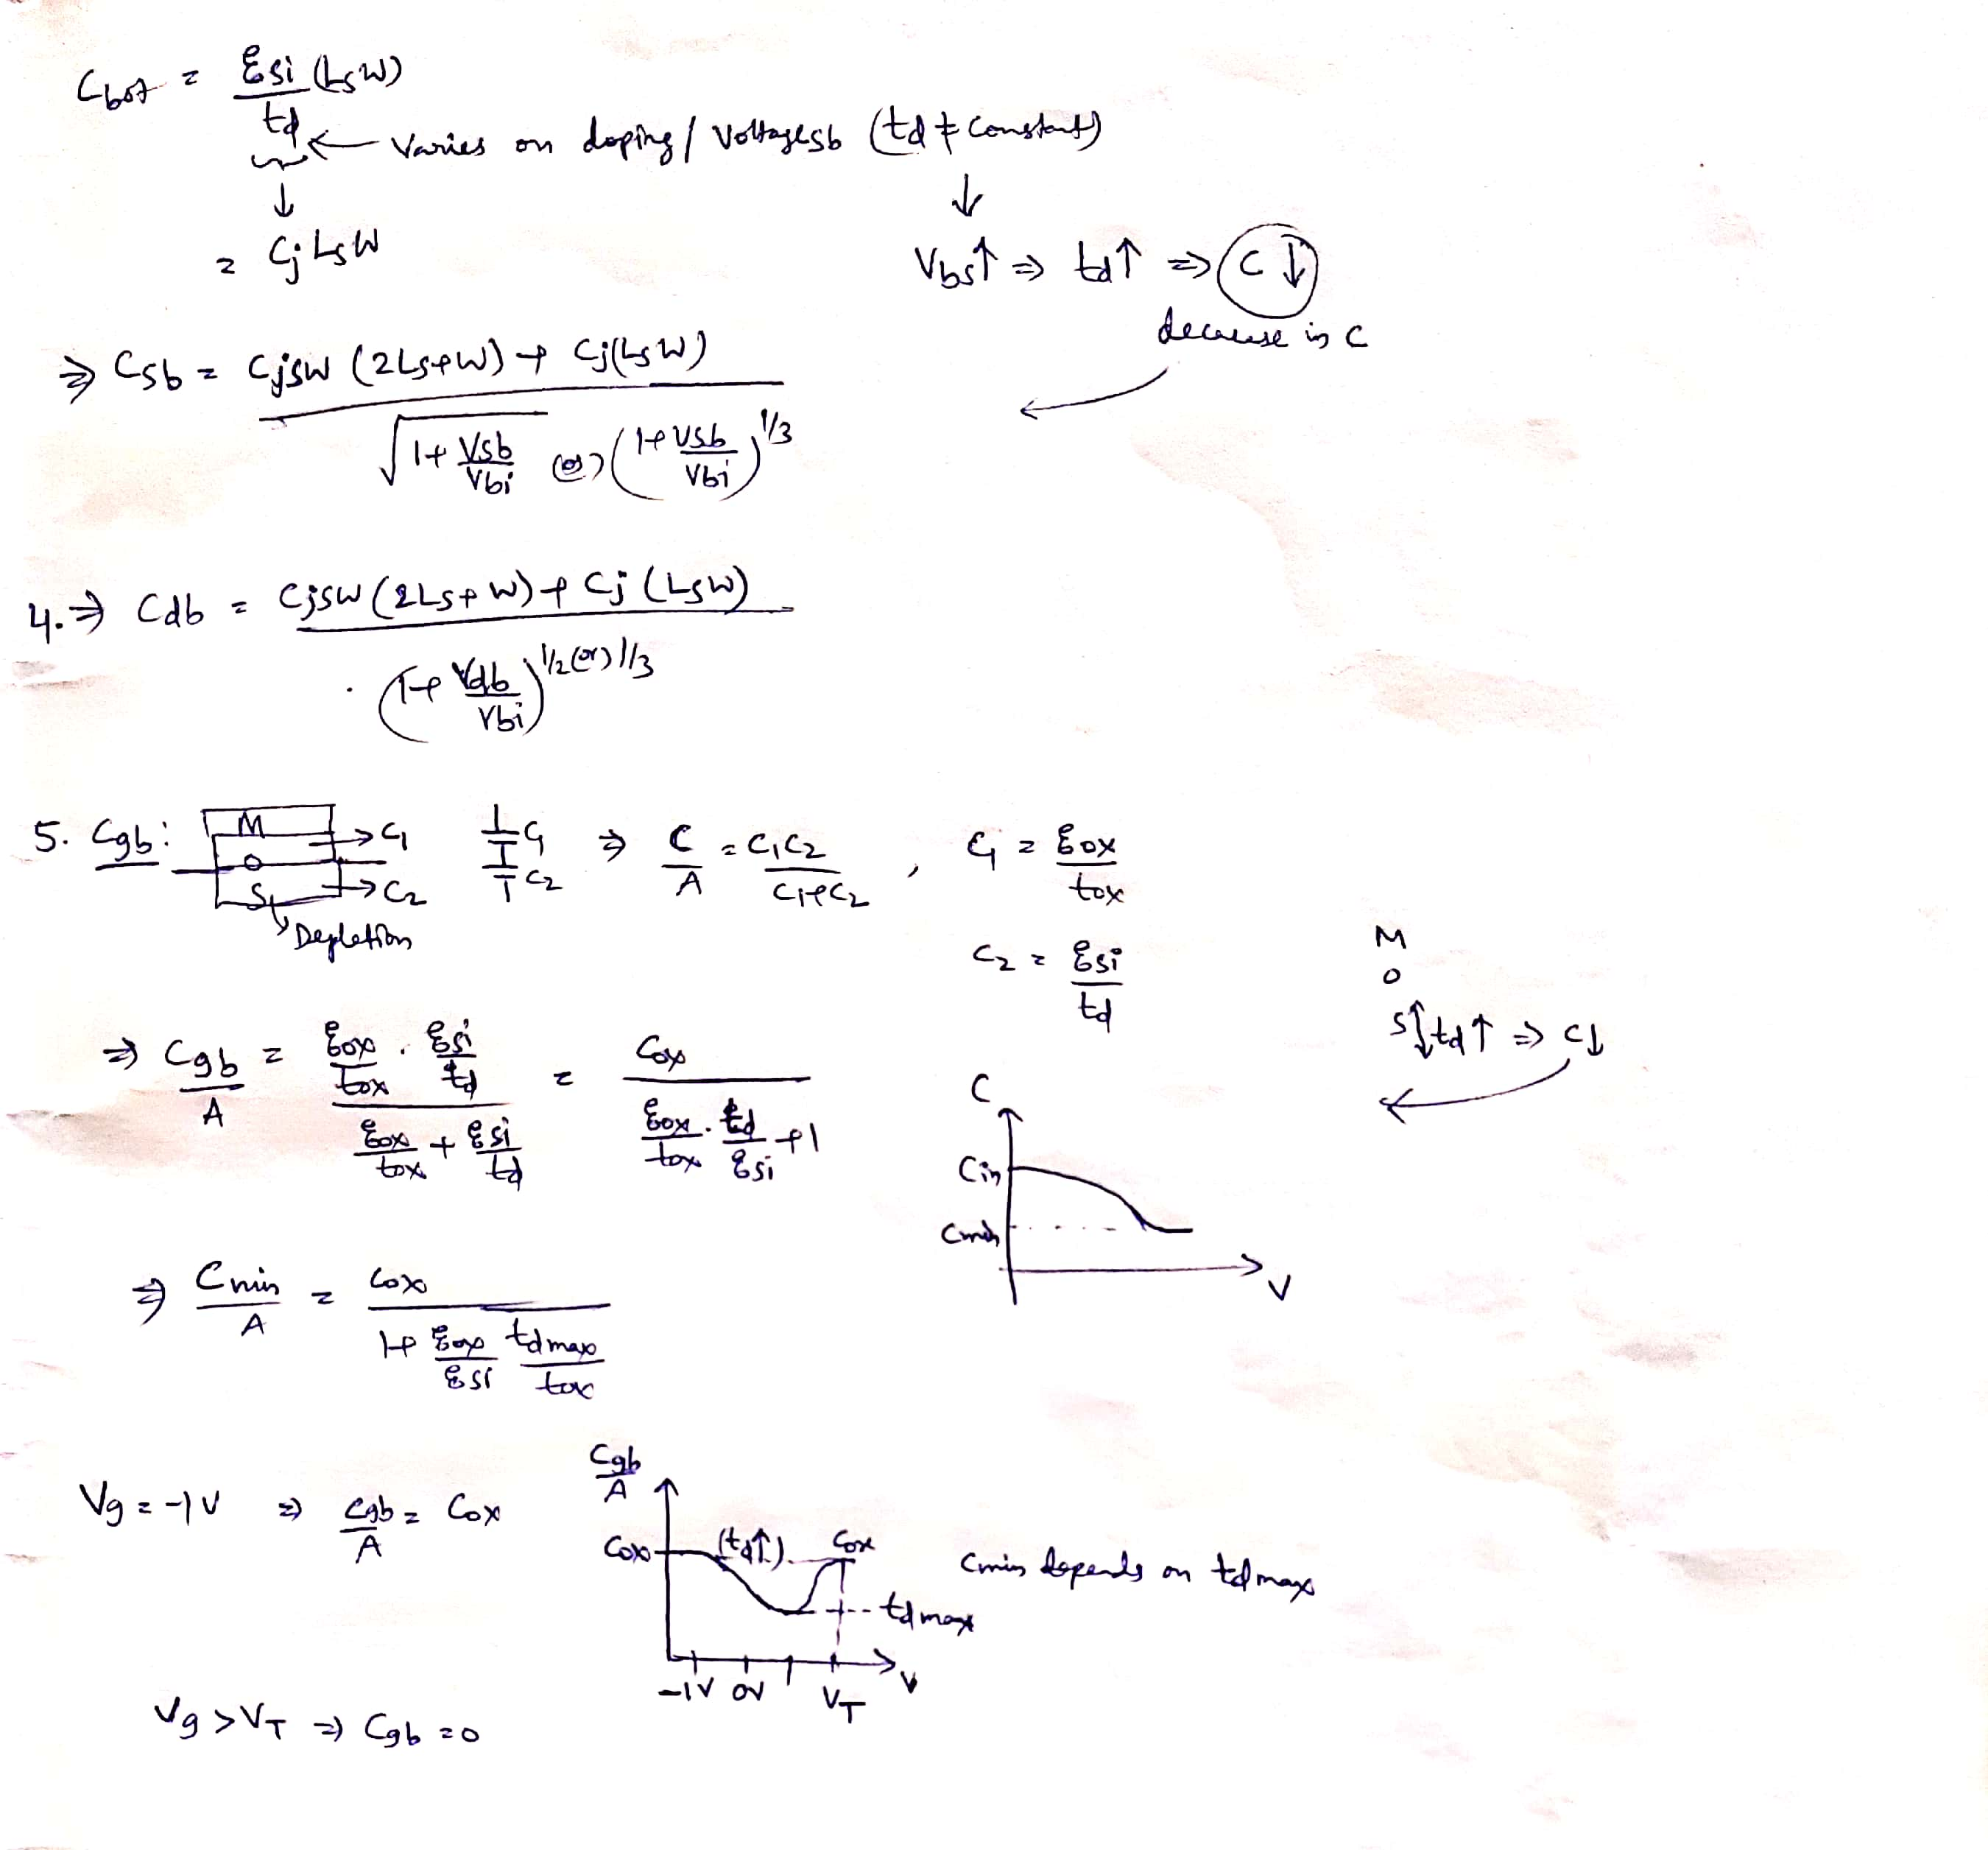 Cbot = εsi (LsW) / td
td ← Varies on doping / Voltagesb (td ≠ Constant)
↓ ↓
= Cj LsW
Vbs↑ ⇒ td↑ ⇒ C↓
decrease in C
⇒ Csb = Cjsw (2Ls+W) + Cj(LsW) / √(1+ Vsb/Vbi) (or) (1+ Vsb/Vbi)^1/3
4. ⇒ Cdb = Cjsw (2Ls+W) + Cj (LsW) / (1+ Vdb/Vbi)^1/2 (or) 1/3
5. Cgb: M → C1 C1 ⇒ C/A = C1C2 / C1+C2 , C1 = εox/tox
O
S → C2 C2
Depletion
C2 = εsi/td
M
O
S ↕ td↑ ⇒ C↓
⇒ Cgb/A = εox/tox . εsi/td / εox/tox + εsi/td = Cox / εox/tox . td/εsi +1
C
Cin
Cmin
V
⇒ Cmin/A = Cox / 1+ εox/εsi tdmax/tox
Cgb/A
Vg = -1V ⇒ Cgb/A = Cox
Cox (td↑) Cox
Cmin depends on tdmax
tdmax
-1V 0V VT V
Vg > VT ⇒ Cgb = 0